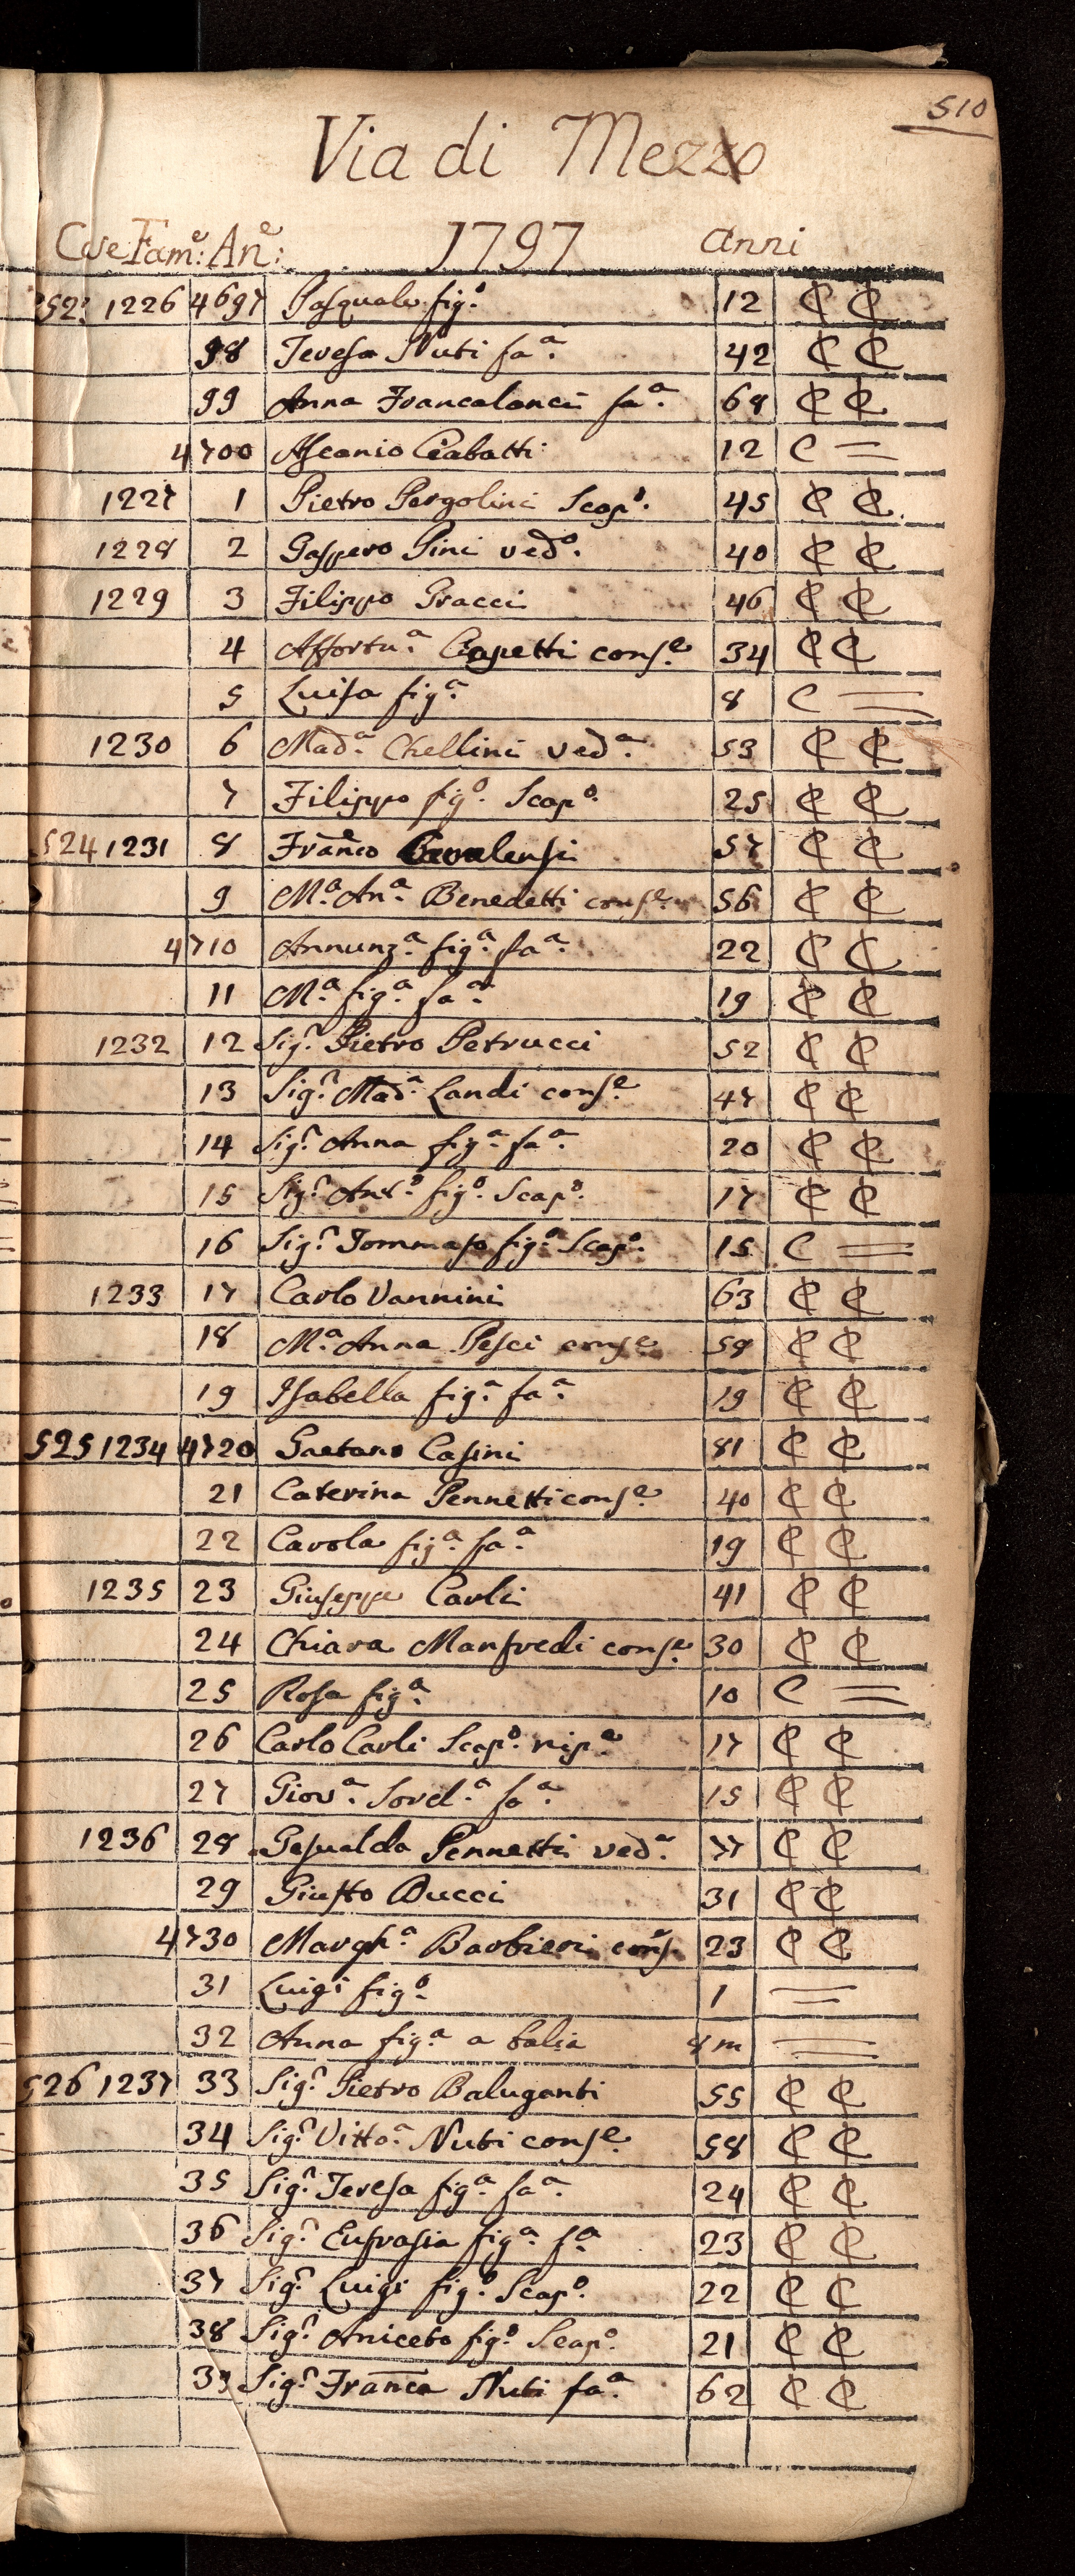 510
Via di Mezzo
Case Fam.e: An.e: 1797 Anni
523 1226 4697 Pasquale fig.o 12 C C
98 Teresa Nuti fa.a 42 C C
99 Anna Francalanci fa.a 68 C C
4700 Ascanio Ciabatti 12 C =
1227 1 Pietro Pergolini Scap.o 45 C C
1228 2 Gasspero Pini ved.o 40 C C
1229 3 Filippo Gracci 46 C C
4 Affortu.a Capetti cons.e 34 C C
5 Luisa fig.a 8 C =
1230 6 Mad.a Chellini ved.a 53 C C
7 Filippo fig.o Scap.o 25 C C
524 1231 8 Fran.co 57 C C
9 M.a An.a Benedetti cons.e 56 C C
4710 Annunz.a fig.a fa.a 22 C C
11 M.a fig.a fa.a 19 C C
1232 12 Sig.r Pietro Petrucci 52 C C
13 Sig.r Mad.a Landi cons.e 47 C C
14 Sig.r Anna fig.a fa.a 20 C C
15 Sig.r Ant.o fig.o Scap.o 17 C C
16 Sig.r Tommaso fig.o Scap.o 15 C =
1233 17 Carlo Vannini 63 C C
18 M.a Anna Pesci cons.e 59 C C
19 Isabella fig.a fa.a 19 C C
525 1234 4720 Gaetano Casini 81 C C
21 Caterina Pennetti cons.e 40 C C
22 Carola fig.a fa.a 19 C C
1235 23 Giuseppe Carli 41 C C
24 Chiara Manfredi cons.e 30 C C
25 Rosa fig.a 10 C =
26 Carlo Carli Scap.o nip.e 17 C C
27 Giov.a Sorel.a fa.a 15 C C
1236 28 Gesualda Pennetti ved.a 77 C C
29 Giusto Bucci 31 C C
4730 Margh.a Barbieri cons.e 23 C C
31 Luigi fig.o 1 =
32 Anna fig.a a balia 8 m =
526 1237 33 Sig.r Pietro Baluganti 55 C C
34 Sig.r Vitto.a Nuti cons.e 58 C C
35 Sig.r Teresa fig.a fa.a 24 C C
36 Sig.r Eufrasia fig.a f.a 23 C C
37 Sig.r Luigi fig.o Scap.o 22 C C
38 Sig.r Aniceto fig.o Scap.o 21 C C
39 Sig.r Fran.ca Nuti fa.a 62 C C